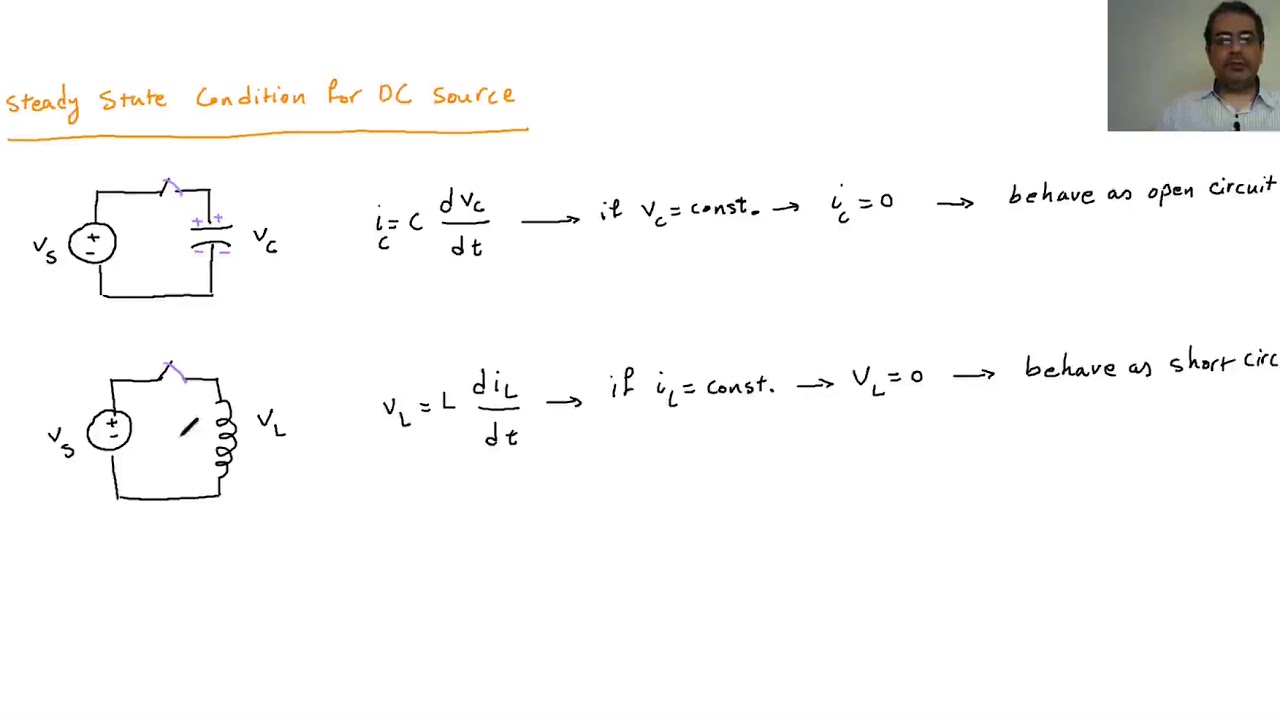 Steady State Condition for DC Source
Vs + - + + - - Vc
ic = C dVc/dt → if Vc = const. → ic = 0 → behave as open circuit
Vs + - VL
VL = L diL/dt → if iL = const. → VL = 0 → behave as short circ